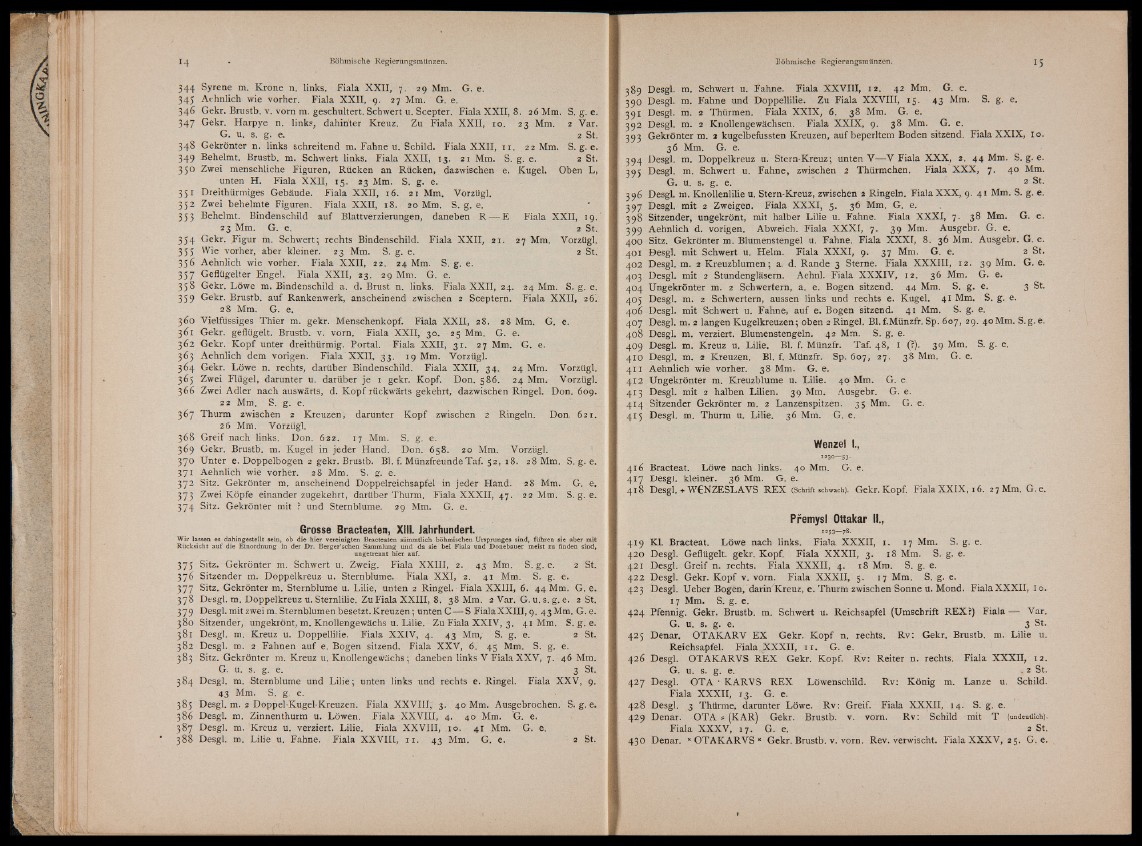 14
Böhmische Regierungsmünzen.
344 Syrene m. Krone n. links. Fiala XXII, 7. 29 Mm. G. e.
345 Aehnlich wie vorher. Fiala XXII, 9. 27 Mm. G. e.
346 Gekr. Brustb. v. vorn m. geschultert. Schwert u. Scepter. Fiala XXII, 8. 26 Mm. S. g. e.
347 Gekr. Harpye n. links, dahinter Kreuz. Zu Fiala XXII, 10. 23 Mm. 2 Var.
G. u. s. g. e. 2 St.
348 Gekrönter n. links schreitend m. Fahne u. Schild. Fiala XXII, 11. 22 Mm. S. g. e.
349 Behelmt. Brustb. m. Schwert links. Fiala XXII, 13. 21 Mm. S. g. e. 2 St.
350 Zwei menschliche Figuren, Rücken an Rücken, dazwischen e. Kugel. Oben L,
unten H. Fiala XXII, 15. 23 Mm. S. g. e.
351 Dreithürmiges Gebäude. Fiala XXII, 16. 21 Mm. Vorzügl.
352 Zwei behelmte Figuren. Fiala XXII, 18. 20 Mm. S. g. e.
353 Behelmt. Bindenschild auf Blattverzierungen, daneben R — E Fiala XXII, 19.
23 Mm. G. e. 2 St.
354 Gekr. Figur m. Schwert; rechts Bindenschild. Fiala XXII, 21. 27 Mm. Vorzügl.
355 Wie vorher, aber kleiner. 23 Mm. S. g. e. 2 St.
356 Aehnlich wie vorher. Fiala XXII, 22. 24 Mm. S. g. e.
357 Geflügelter Engel. Fiala XXII, 23. 29 Mm. G. e.
358 Gekr. Löwe m. Bindenschild a. d. Brust n. links. Fiala XXII, 24. 24 Mm. S. g. e.
359 Gekr. Brustb. auf Rankenwerk, anscheinend zwischen 2 Sceptern. Fiala XXII, 26.
28 Mm. G. e.
360 Vielfüssiges Thier m. gekr. Menschenkopf. Fiala XXII, 28. 28 Mm. G. e.
361 Gekr. geflügelt. Brustb. v. vorn. Fiala XXII, 30. 25 Mm. G. e.
362 Gekr. Kopf unter dreithürmig. Portal. Fiala XXII, 31. 27 Mm. G. e.
363 Aehnlich dem vorigen. Fiala XXII, 33. 19 Mm. Vorzügl.
364 Gekr. Löwe n. rechts, darüber Bindenschild. Fiala XXII, 34. 24 Mm. Vorzügl.
365 Zwei Flügel, darunter u. darüber je 1 gekr. Kopf. Don. 586. 24 Mm. Vorzügl.
366 Zwei Adler nach auswärts, d. Kopf rückwärts gekehrt, dazwischen Ringel. Don. 609.
22 Mm. S. g. e.
367 Thurm zwischen 2 Kreuzen, darunter Kopf zwischen 2 Ringeln. Don. 621.
26 Mm. Vorzügl.
368 Greif nach links. Don. 622. 17 Mm. S. g. e.
369 Gekr. Brustb. m. Kugel in jeder Hand. Don. 658. 20 Mm. Vorzügl.
370 Unter e. Doppelbogen 2 gekr. Brustb. Bl. f. Münzfreunde Taf. 52, 18. 28 Mm. S. g. e.
371 Aehnlich wie vorher. 28 Mm. S. g. e.
372 Sitz. Gekrönter m. anscheinend Doppelreichsapfel in jeder Hand. 28 Mm. G. e.
373 Zwei Köpfe einander zugekehrt, darüber Thurm. Fiala XXXII, 47. 22 Mm. S. g. e.
374 Sitz. Gekrönter mit ? und Sternblume. 29 Mm. G. e.
Grosse Bracteaten, XIII. Jahrhundert.
Wir lassen es dahingestellt sein, ob die hier vereinigten Bracteaten sämmtlich böhmischen Ursprunges sind, führen sie aber mit
Rücksicht auf die Einordnung in der Dr. Berger'schen Sammlung und da sie bei Fiala und Donebauer meist zu finden sind,
ungetrennt hier auf.
375 Sitz. Gekrönter m. Schwert u. Zweig. Fiala XXIII, 2. 43 Mm. S. g. e. 2 St.
376 Sitzender m. Doppelkreuz u. Sternblume. Fiala XXI, 2. 41 Mm. S. g. e.
377 Sitz. Gekrönter m. Sternblume u. Lilie, unten 2 Ringel. Fiala XXIII, 6. 44 Mm. G. e.
378 Desgl. m. Doppelkreuz u. Sternlilie. Zu Fiala XXIII, 8. 38 Mm. 2 Var. G. u. s. g. e. 2 St.
379 Desgl. mit zwei m. Sternblumen besetzt. Kreuzen; unten C — S Fiala XXIII, 9. 43 Mm. G. e.
380 Sitzender, ungekrönt, m. Knollengewächs u. Lilie. Zu Fiala XXIV, 3. 41 Mm. S. g. e.
381 Desgl. m. Kreuz u. Doppellilie. Fiala XXIV, 4. 43 Mm. S. g. e. 2 St.
382 Desgl. m. 2 Fahnen auf e. Bogen sitzend. Fiala XXV, 6. 45 Mm. S. g. e.
383 Sitz. Gekrönter m. Kreuz u. Knollengewächs; daneben links V Fiala XXV, 7. 46 Mm.
G. u. s. g. e. 3 St.
384 Desgl. m. Sternblume und Lilie; unten links und rechts e. Ringel. Fiala XXV, 9.
43 Mm. S. g. e.
385 Desgl. m. 2 Doppel-Kugel-Kreuzen. Fiala XXVIII, 3. 40 Mm. Ausgebrochen. S. g. e.
386 Desgl. m. Zinnenthurm u. Löwen. Fiala XXVIII, 4. 40 Mm. G. e.
387 Desgl. m. Kreuz u. verziert. Lilie. Fiala XXVIII, 10. 41 Mm. G. e.
388 Desgl. m. Lilie u. Fahne. Fiala XXVIII, 11. 43 Mm. G. e. 2 St.
Böhmische Regierungsmünzen.
15
389 Desgl. m. Schwert u. Fahne. Fiala XXVIII, 12. 42 Mm. G. e.
390 Desgl. m. Fahne und Doppellilie. Zu Fiala XXVIII, 15. 43 Mm. S. g. e.
391 Desgl. m. 2 Thürmen. Fiala XXIX, 6. 38 Mm. G. e.
392 Desgl. m. 2 Knollengewächsen. Fiala XXIX, 9. 38 Mm. G. e.
393 Gekrönter m. 2 kugelbefussten Kreuzen, auf beperltem Boden sitzend. Fiala XXIX, 10.
36 Mm. G. e.
394 Desgl. m. Doppelkreuz u. Stern-Kreuz; unten V—V Fiala XXX, 2. 44 Mm. S. g. e.
395 Desgl. m. Schwert u. Fahne, zwischen 2 Thürmchen. Fiala XXX, 7. 40 Mm.
G. u. s. g. e. 2 St.
396 Desgl. m. Knollenlilie u. Stern-Kreuz, zwischen 2 Ringeln. Fiala XXX, 9. 41 Mm. S. g. e.
397 Desgl. mit 2 Zweigen. Fiala XXXI, 5. 36 Mm. G. e.
398 Sitzender, ungekrönt, mit halber Lilie u. Fahne. Fiala XXXI, 7. 38 Mm. G. e.
399 Aehnlich d. vorigen. Abweich. Fiala XXXI, 7. 39 Mm. Ausgebr. G. e.
400 Sitz. Gekrönter m. Blumenstengel u. Fahne. Fiala XXXI, 8. 36 Mm. Ausgebr. G. e.
401 Desgl. mit Schwert u. Helm. Fiala XXXI, 9. 37 Mm. G. e. 2 St.
402 Desgl. m. 2 Kreuzblumen; a. d. Rande 3 Sterne. Fiala XXXIII, 12. 39 Mm. G. e.
403 Desgl. mit 2 Stundengläsern. Aehnl. Fiala XXXIV, 12. 36 Mm. G. e.
404 Ungekrönter m. 2 Schwertern, a. e. Bogen sitzend. 44 Mm. S. g. e. 3 St.
405 Desgl. m. 2 Schwertern, aussen links und rechts e. Kugel. 41 Mm. S. g. e.
406 Desgl. mit Schwert u. Fahne, auf e. Bogen sitzend. 41 Mm. S. g. e.
407 Desgl. m. 2 langen Kugelkreuzen; oben 2 Ringel. Bl. f. Münzfr. Sp. 607, 29. 40 Mm. S. g. e.
408 Desgl. m. verziert. Blumenstengeln. 42 Mm. S. g. e.
409 Desgl. m. Kreuz u. Lilie. Bl. f. Münzfr. Taf. 48, 1 (?). 39 Mm. S. g. e.
410 Desgl. m. 2 Kreuzen. Bl. f. Münzfr. Sp. 607, 27. 38 Mm. G. e.
411 Aehnlich wie vorher. 38 Mm. G. e.
412 Ungekrönter m. Kreuzblume u. Lilie. 40 Mm. G. e
413 Desgl. mit 2 halben Lilien. 39 Mm. Ausgebr. G. e.
414 Sitzender Gekrönter m. 2 Lanzenspitzen. 35 Mm. G. e.
415 Desgl. m. Thurm u. Lilie. 36 Mm. G. e.
Wenzel I.,
1230—53.
416 Bracteat. Löwe nach links. 40 Mm. G. e.
417 Desgl. kleiner. 36 Mm. G. e.
418 Desgl. + WЄNZESLAVS REX (Schrift schwach). Gekr. Kopf. Fiala XXIX, 16. 27 Mm. G. e.
Přemysl Ottakar II.,
1253—78.
419 Kl. Bracteat. Löwe nach links. Fiala XXXII, 1. 17 Mm. S. g. e.
420 Desgl. Geflügelt. gekr. Kopf. Fiala XXXII, 3. 18 Mm. S. g. e.
421 Desgl. Greif n. rechts. Fiala XXXII, 4. 18 Mm. S. g. e.
422 Desgl. Gekr. Kopf v. vorn. Fiala XXXII, 5. 17 Mm. S. g. e.
423 Desgl. Ueber Bogen, darin Kreuz, e. Thurm zwischen Sonne u. Mond. Fiala XXXII, 10.
17 Mm. S. g. e.
424 Pfennig. Gekr. Brustb. m. Schwert u. Reichsapfel (Umschrift REX?) Fiala — Var.
G. u. s. g. e. 3 St.
425 Denar. OTAKARV EX Gekr. Kopf n. rechts. Rv: Gekr. Brustb. m. Lilie u.
Reichsapfel. Fiala XXXII, 11. G. e.
426 Desgl. OTAKARVS REX Gekr. Kopf. Rv: Reiter n. rechts. Fiala XXXII, 12.
G. u. s. g. e. 2 St.
427 Desgl. OTA · KARVS REX Löwenschild. Rv: König m. Lanze u. Schild.
Fiala XXXII, 13. G. e.
428 Desgl. 3 Thürme, darunter Löwe. Rv: Greif. Fiala XXXII, 14. S. g. e.
429 Denar. OTA * (KAR) Gekr. Brustb. v. vorn. Rv: Schild mit T (undeutlich).
Fiala XXXV, 17. G. e. 2 St.
430 Denar. * OTAKARVS * Gekr. Brustb. v. vorn. Rev. verwischt. Fiala XXXV, 25. G. e.